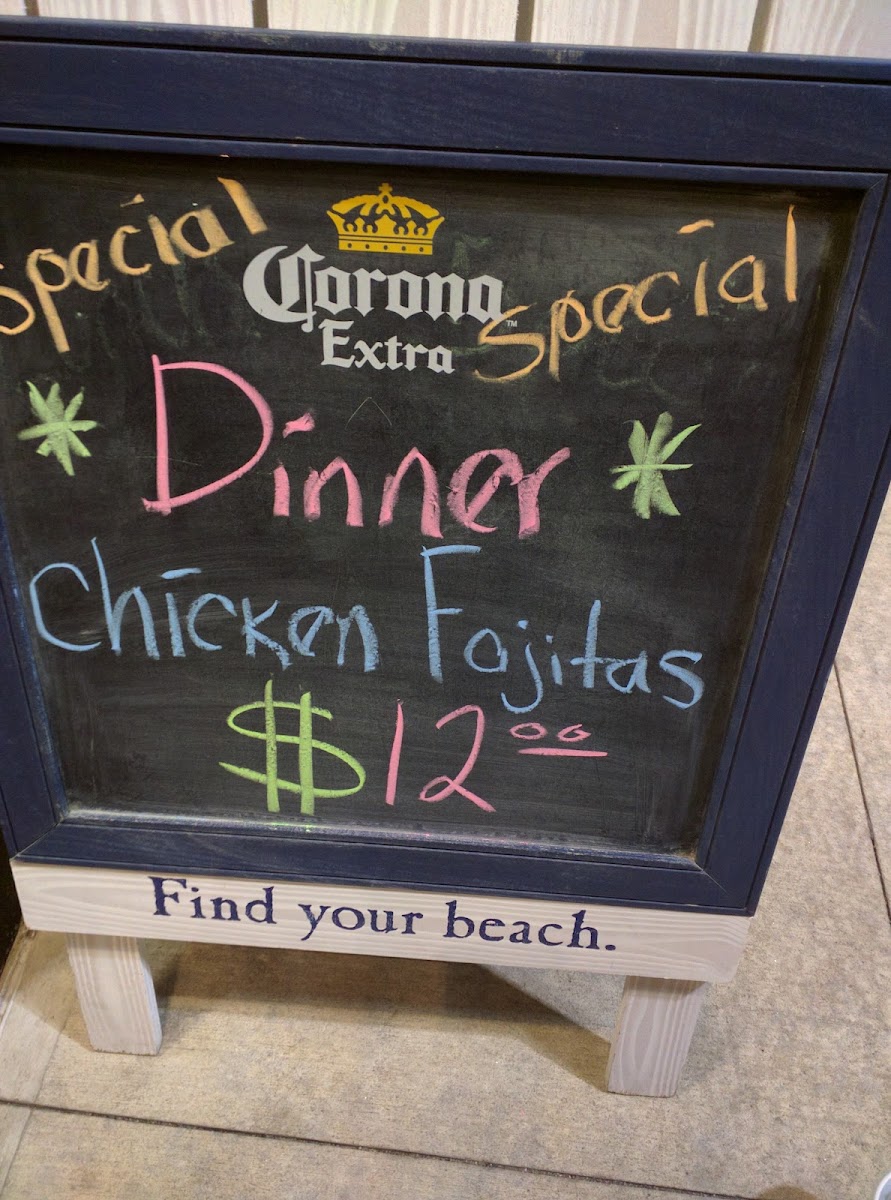 Special Special
Corona™
Extra
* Dinner *
Chicken Fajitas
$12.00
Find your beach.